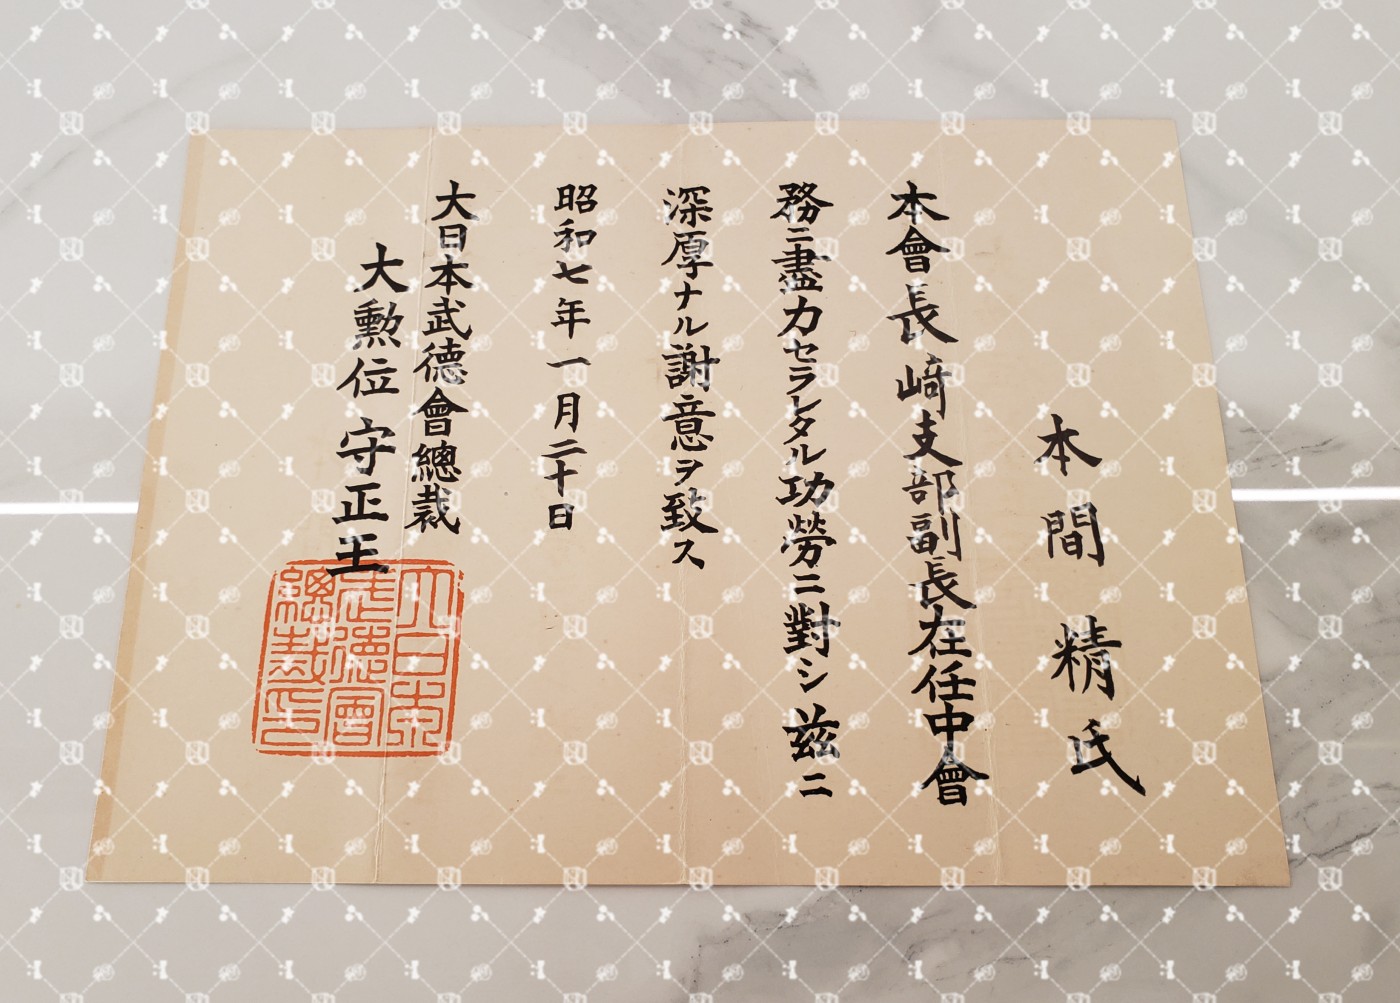 本間精氏
本會長崎支部副長在任中會
務ニ盡力セラレタル功勞ニ對シ茲ニ
深厚ナル謝意ヲ致ス
昭和七年一月二十日
大日本武德會總裁
大勳位守正王
大日本
武德會
總裁印